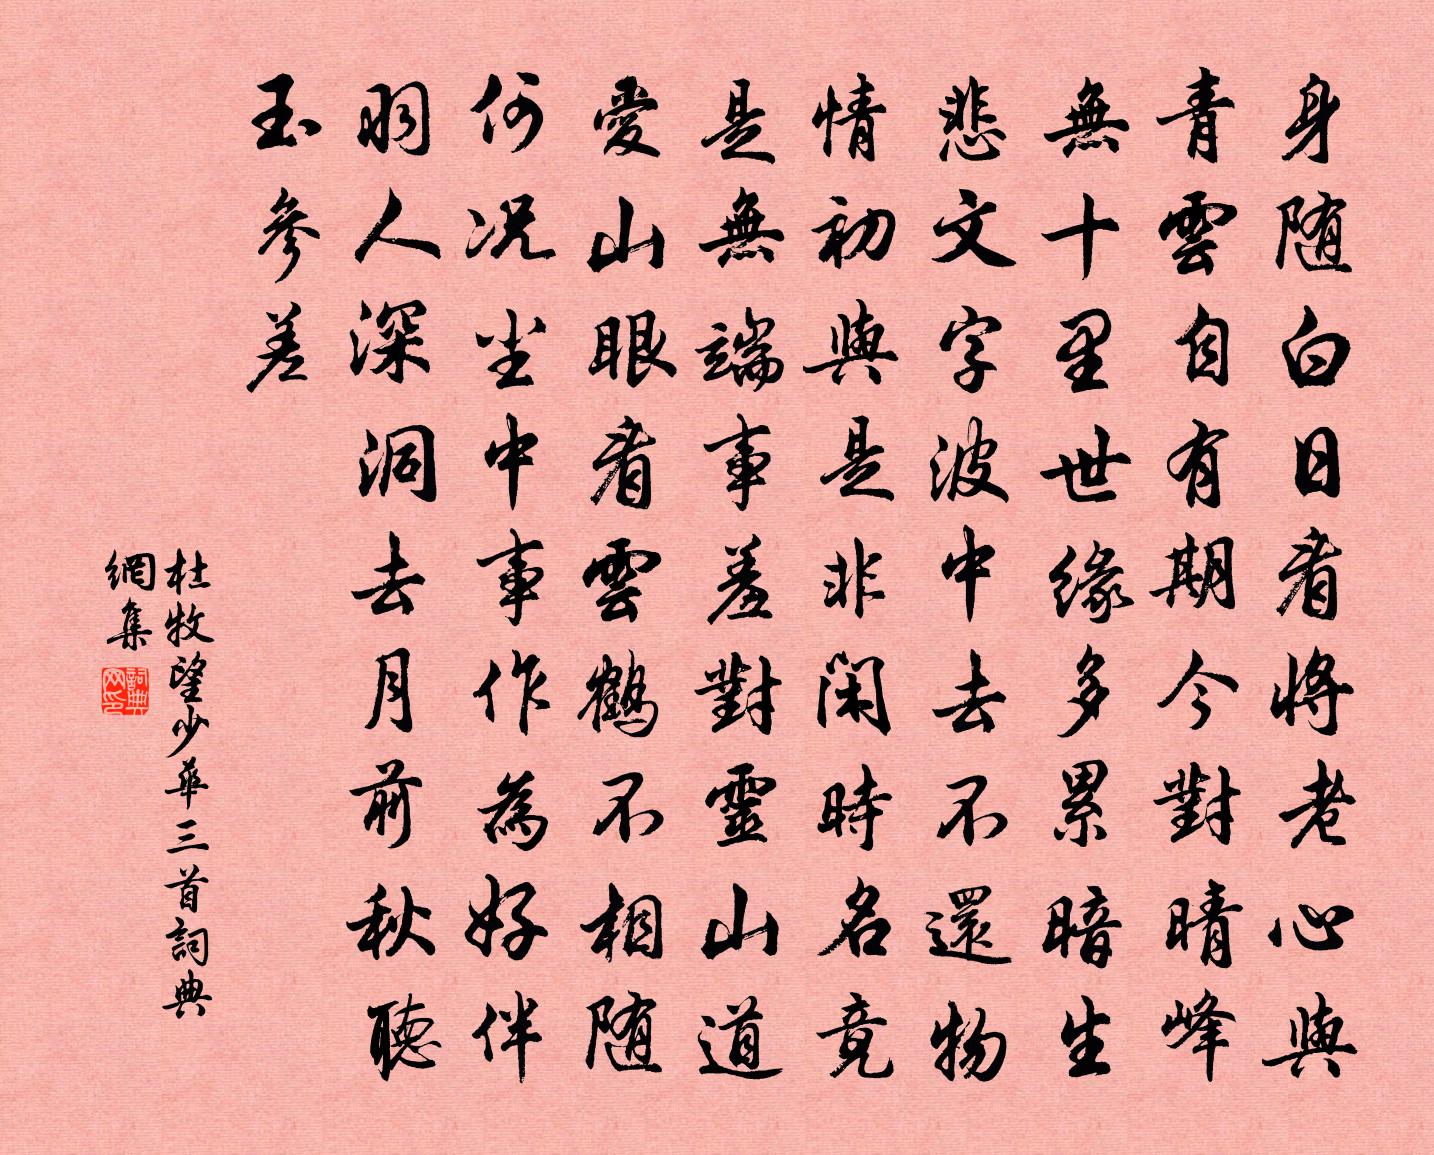 身随白日看將老心與
青雲自有期今對晴峰
無十里世緣多累暗生
悲文字波中去不還物
情初與是非閑時名竟
是無端事羞對靈山道
愛山眼看雲鶴不相随
何况尘中事作為好伴
羽人深洞去月前秋聽
玉參差
杜牧望少華三首詞典
網集
詞典网印